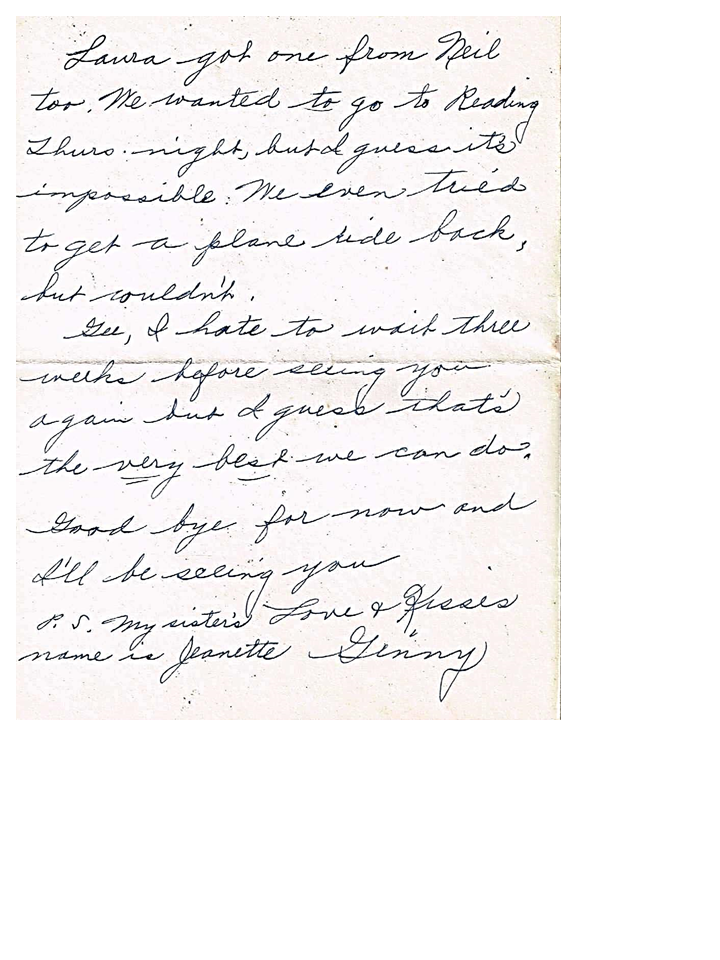 Laura got one from Neil
too. We wanted to go to Reading
Thurs. night, but I guess it's
impossible. We even tried
to get a plane ride back,
but couldn't.
Gee, I hate to wait three
weeks before seeing you
again but I guess that's
the very best we can do.
Good bye for now and
I'll be seeing you
Love & Kisses
Ginny
P.S. My sister's
name is Jeanette